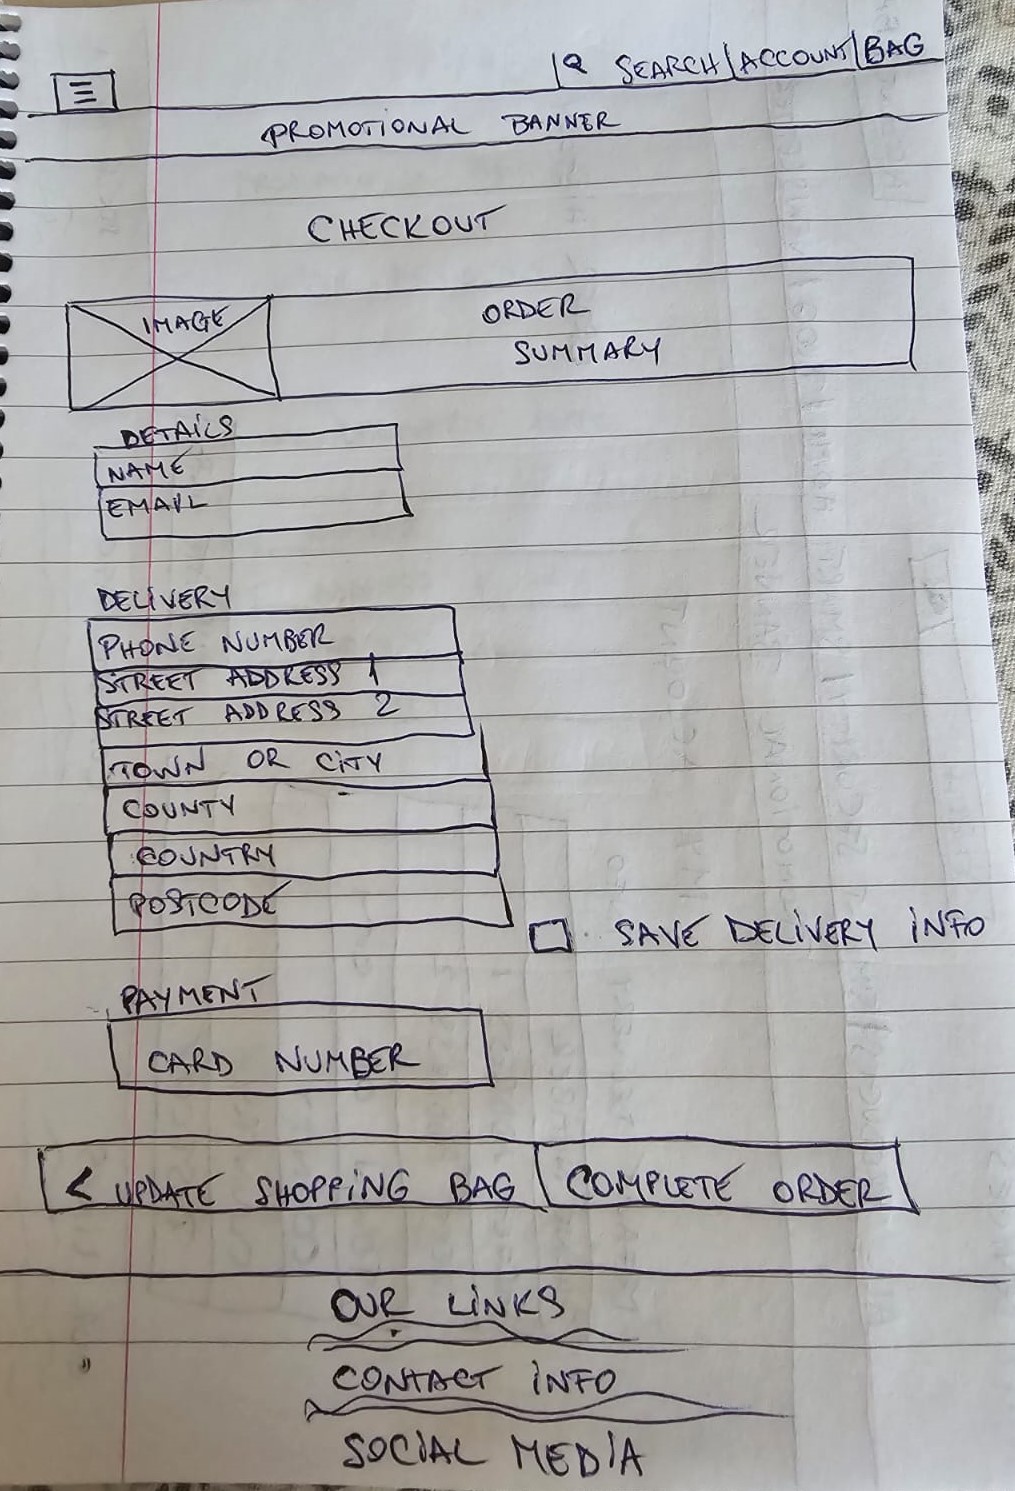 SEARCH | ACCOUNT | BAG
PROMOTIONAL BANNER
CHECKOUT
IMAGE
ORDER
SUMMARY
DETAILS
NAME
EMAIL
DELIVERY
PHONE NUMBER
STREET ADDRESS 1
STREET ADDRESS 2
TOWN OR CITY
COUNTY
COUNTRY
POSTCODE
SAVE DELIVERY INFO
PAYMENT
CARD NUMBER
< UPDATE SHOPPING BAG
COMPLETE ORDER
OUR LINKS
CONTACT INFO
SOCIAL MEDIA